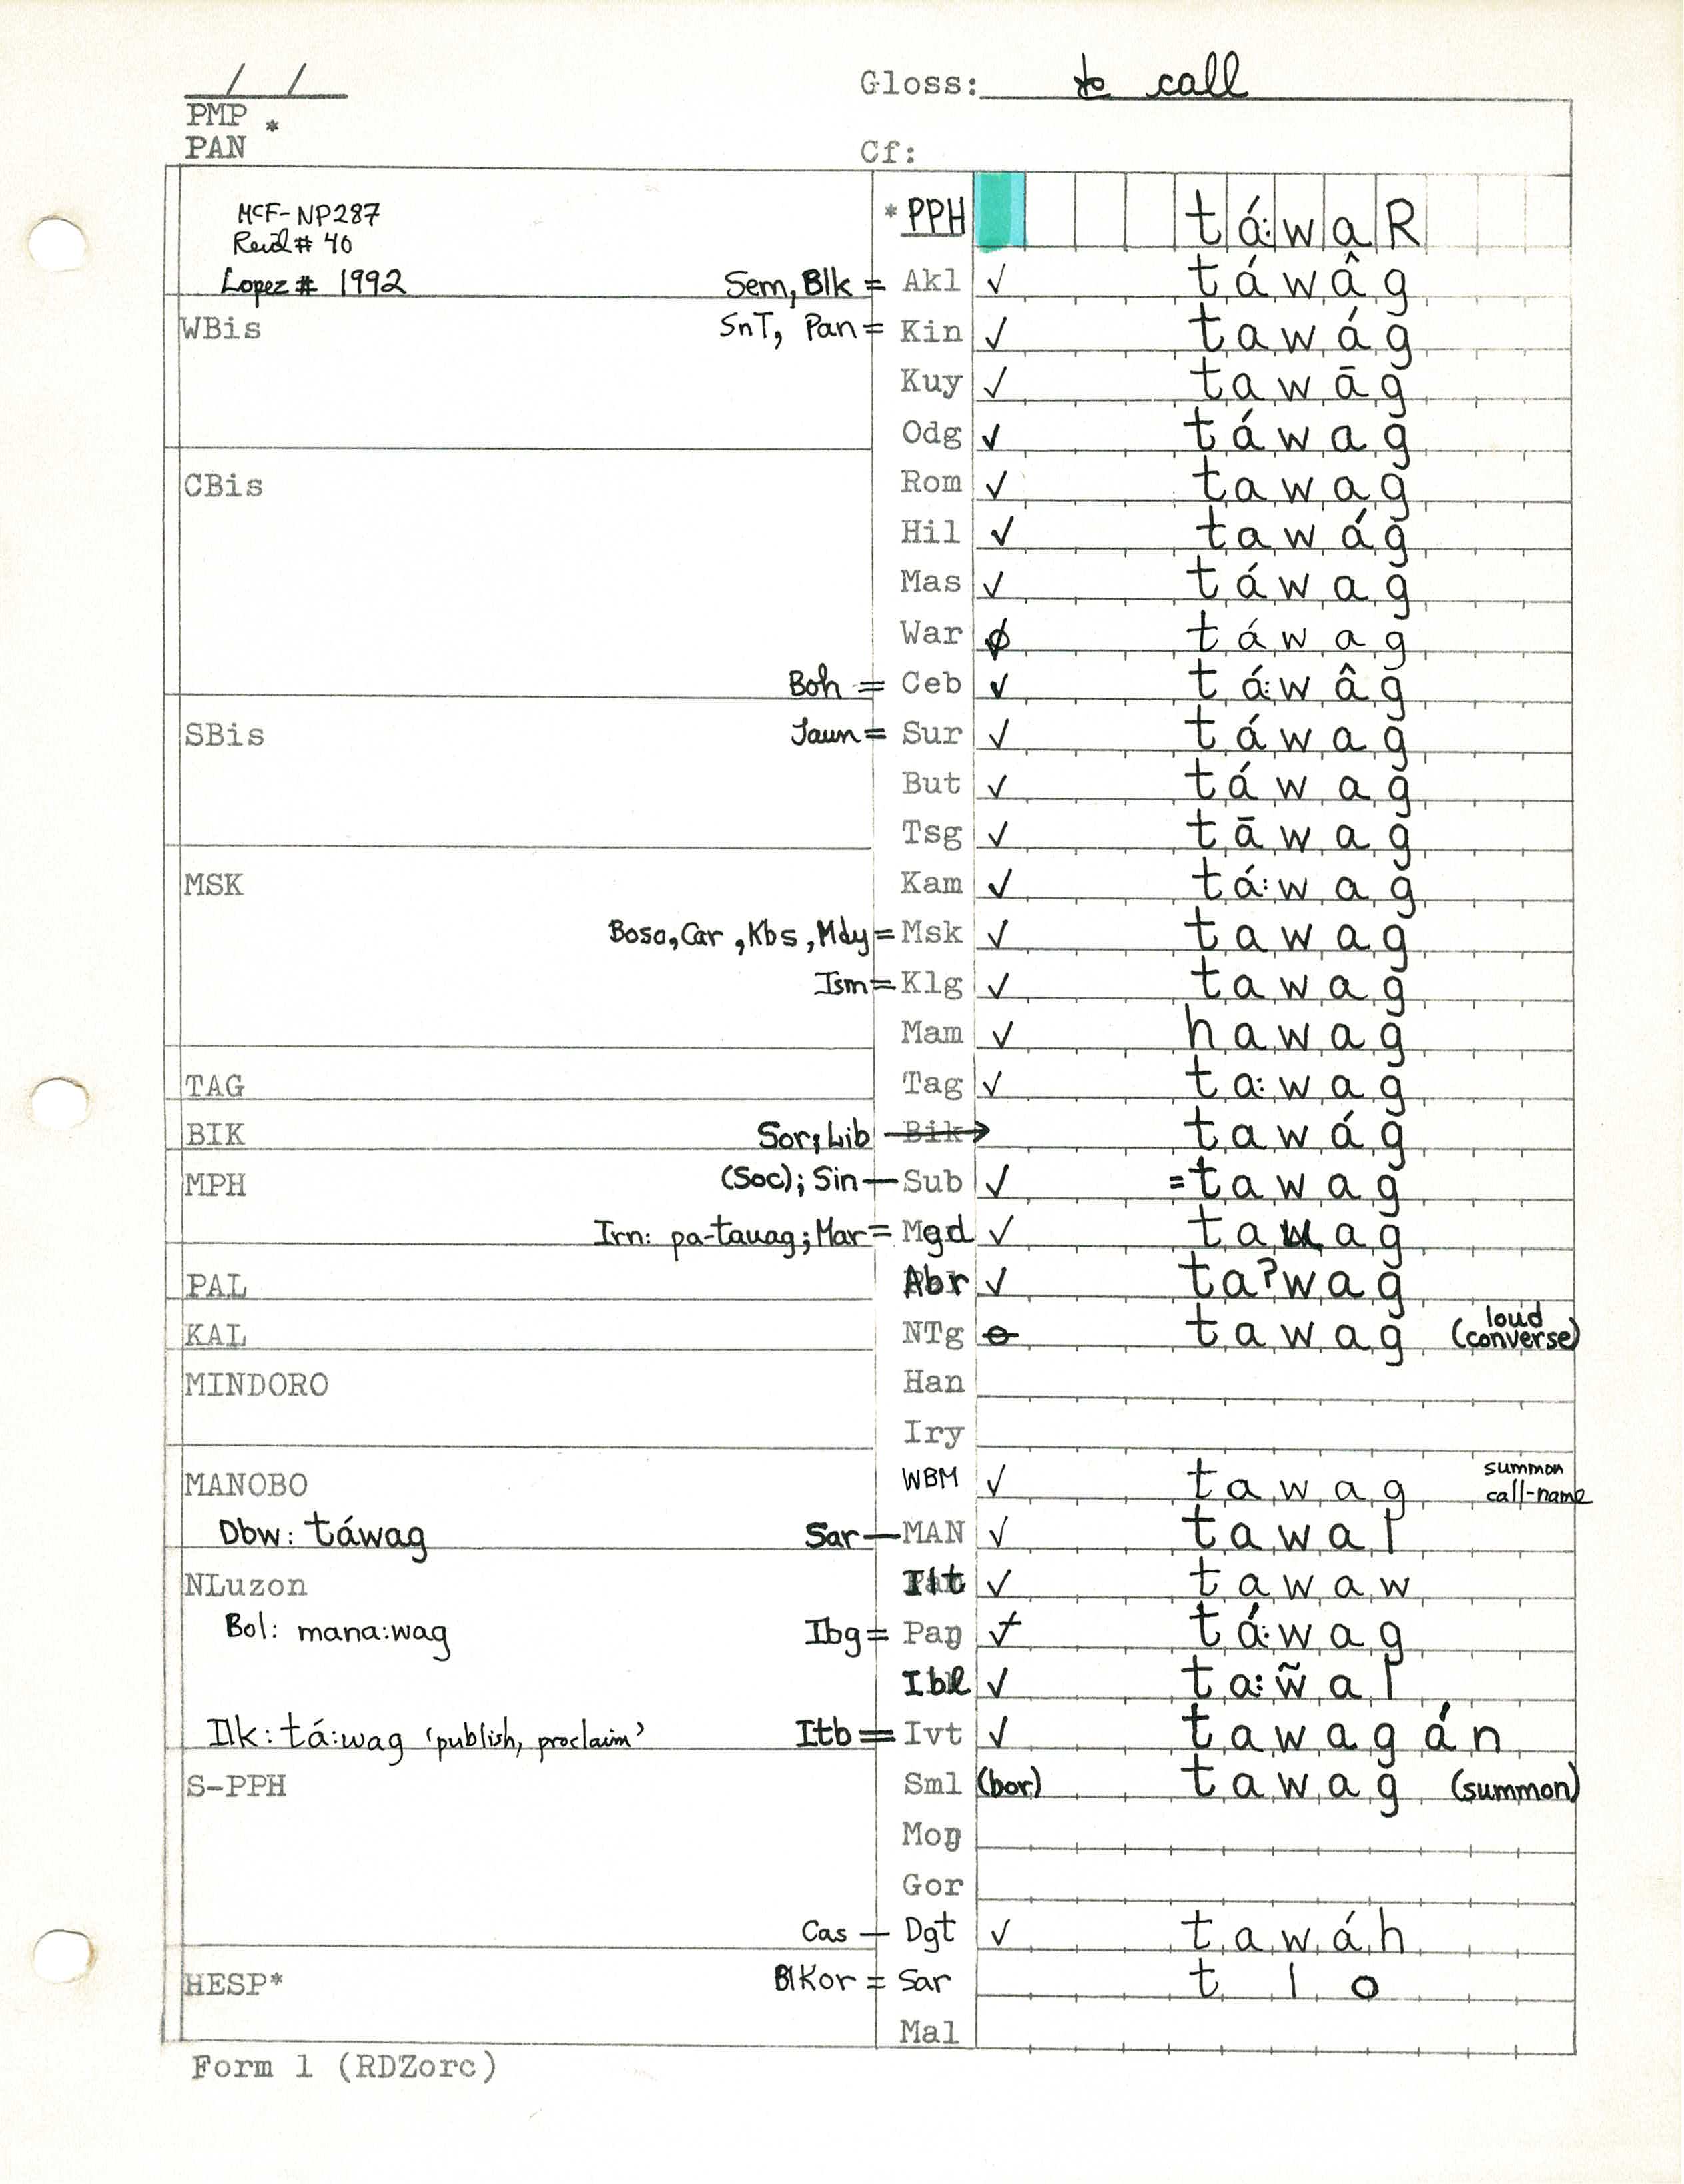 / / Gloss: to call
PMP *
PAN Cf:
McF-NP287 * PPH tá:waR
Reid # 40
Lopez # 1992 Sem, Blk = Akl ✓ táwâg
WBis SnT, Pan = Kin ✓ tawág
Kuy ✓ tawāg
Odg ✓ táwag
CBis Rom ✓ tawag
Hil ✓ tawág
Mas ✓ táwag
War ∅ táwag
Boh = Ceb ✓ tá:wâg
SBis Jaun = Sur ✓ táwag
But ✓ táwag
Tsg ✓ tāwag
MSK Kam ✓ tá:wag
Boso, Car, Kbs, Mdy = Msk ✓ tawag
Ism = Klg ✓ tawag
Mam ✓ hawag
TAG Tag ✓ ta:wag
BIK Sor; Lib Bik → tawág
MPH (Soc); Sin — Sub ✓ =tawag
Irn: pa-tauag; Mar = Mgd ✓ tawag
PAL Abr ✓ ta?wag
KAL NTg ⊖ tawag loud (converse)
MINDORO Han
Iry
MANOBO WBM ✓ tawag summon call-name
Dbw: táwag Sar — MAN ✓ tawal
NLuzon Ilt ✓ tawaw
Bol: mana:wag Ibg = Paŋ ✓ tá:wag
Ibl ✓ ta:w̃al
Ilk: tá:wag ‘publish, proclaim’ Itb = Ivt ✓ tawagán
S-PPH Sml (bor) tawag (summon)
Moŋ
Gor
Cas — Dgt ✓ tawáh
HESP* BlKor = Sar t l o
Mal
Form 1 (RDZorc)